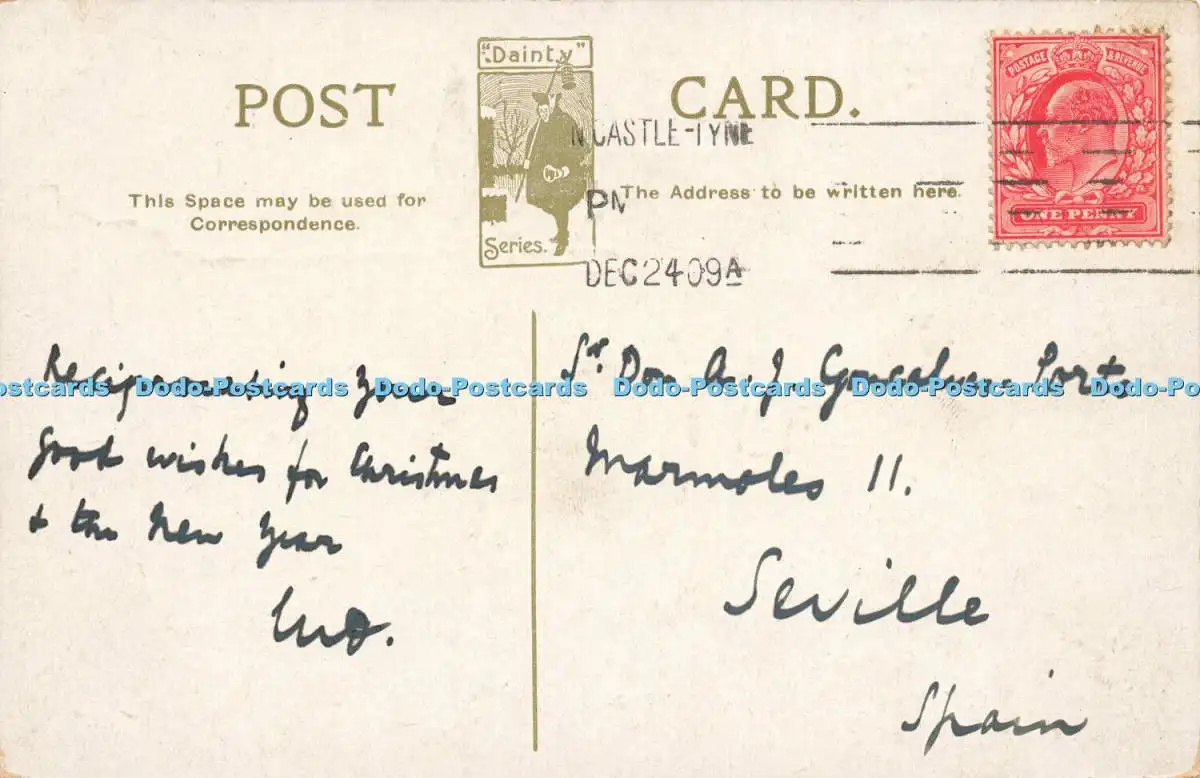 POST CARD.
"Dainty"
Series.
This Space may be used for
Correspondence.
The Address to be written here.
N'CASTLE-TYNE
PM
DEC 24 09 A
POSTAGE & REVENUE
ONE PENNY
Reciprocating your
good wishes for Christmas
& the New Year
Sr. Don A. J. Goncalvez Porto
Marmoles 11.
Seville
Spain
Postcards Dodo-Postcards Dodo-Postcards Dodo-Postcards Dodo-Postcards Dodo-Po